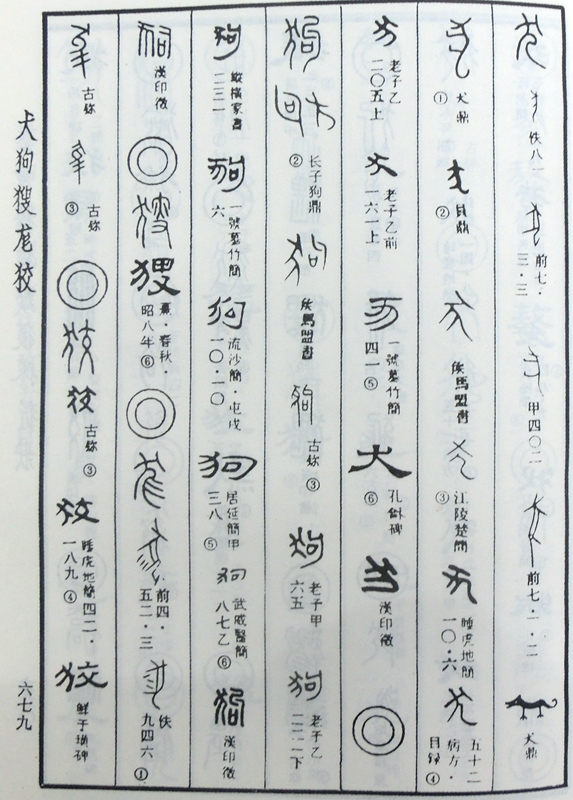 佚八一
前七·三·三
甲四〇二
前七·一·二
犬鼎
① 犬鼎
② 員鼎
侯馬盟書
③ 江陵楚簡
睡虎地簡一〇·六
五十二病方·目録 ④
老子乙二〇五上
老子乙前六一上
一號墓竹簡四一 ⑤
⑥ 孔龢碑
漢印徵
② 长子狗鼎
侯馬盟書
古鉨 ③
老子甲六五
老子乙二二二下
縱橫家書二二一
一號墓竹簡六
流沙簡·屯戍一〇·一〇
居延簡甲三八 ⑤
武威醫簡八七乙 ⑥
漢印徵
漢印徵
熹·春秋·昭八年 ⑥
前四·五二·三
佚九四六 ①
古鉨
古鉨 ③
古鉨 ③
睡虎地簡四二·一八九 ④
鮮于璜碑
犬狗獀尨狡
六七九